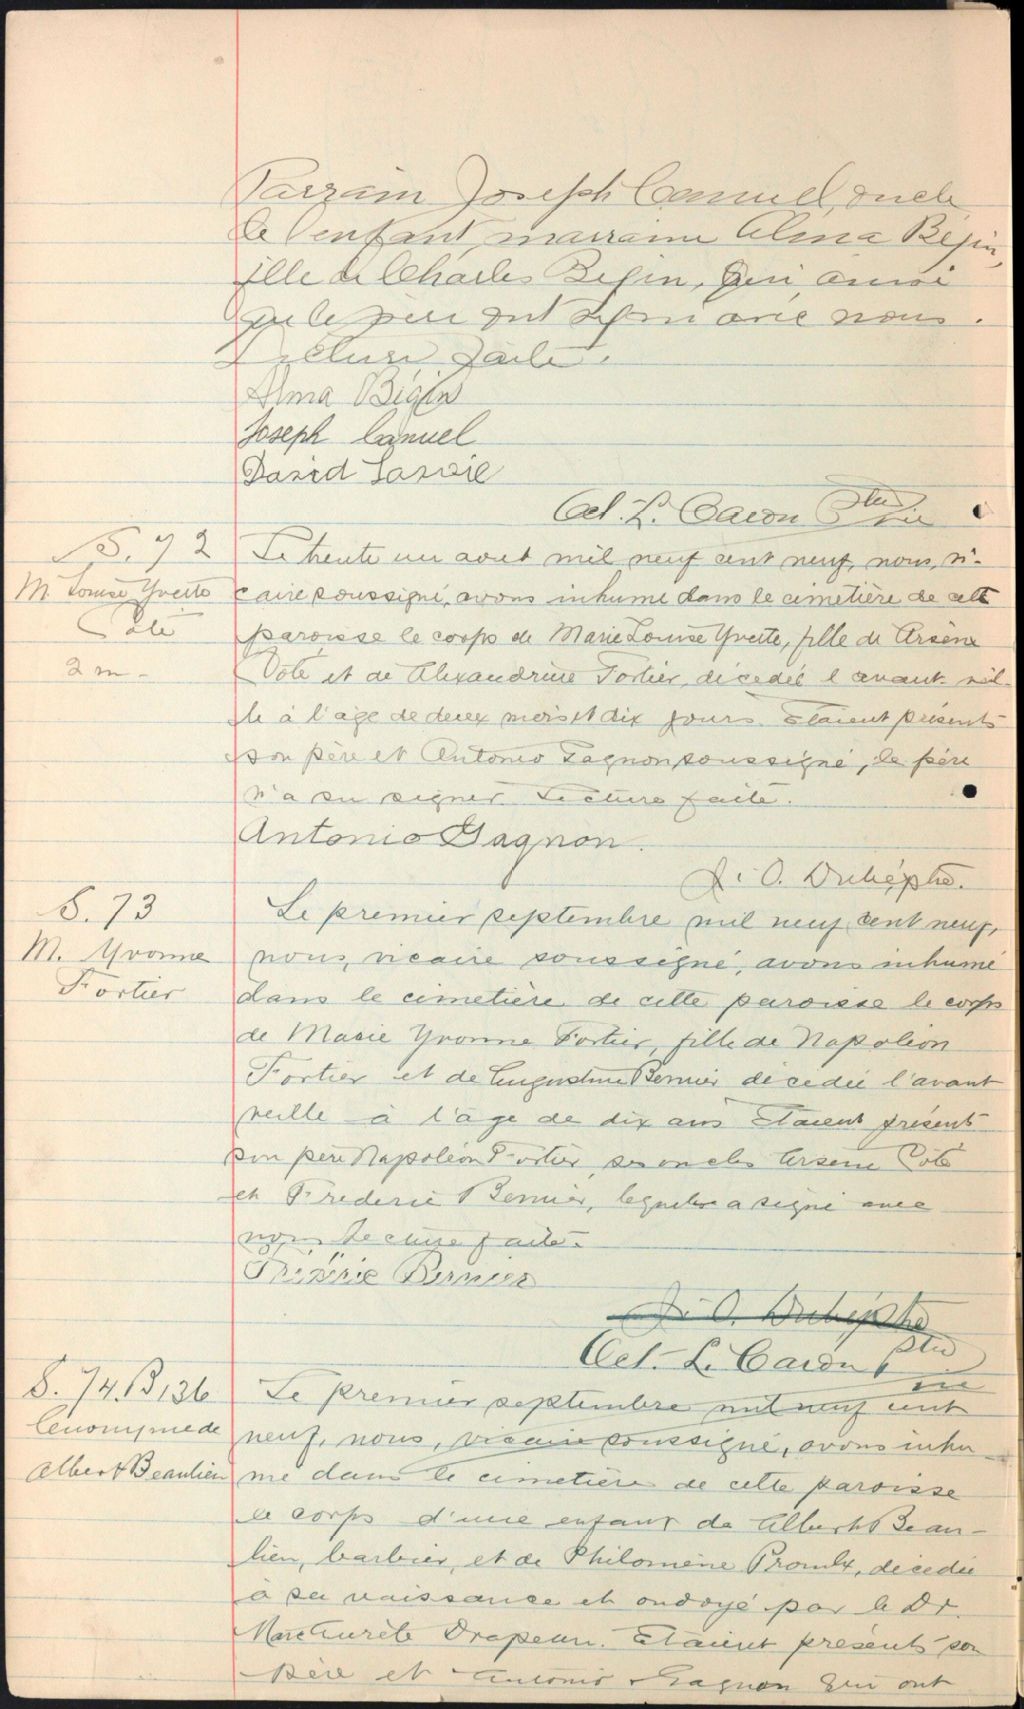 Parrain Joseph Canuel, oncle
de l'enfant, marraine Alma Bégin,
fille de Charles Begin, qui ainsi
que le père ont signé avec nous.
Lecture faite.
Alma Bégin
Joseph Canuel
David Lavoie
Act. L. Caron Ptre
vic
S. 72
M. Louise Yvette
Coté
2 m.
Le trente un aout mil neuf cent neuf, nous, vi-
caire soussigné, avons inhumé dans le cimetière de cette
paroisse le corps de Marie Louise Yvette, fille de Arsène
Coté et de Alexandrine Fortier, décédée l'avant-veil-
le à l'âge de deux mois et dix jours. Etaient présents
son père et Antonio Gagnon soussigné, le père
n'a su signer. Lecture faite.
Antonio Gagnon.
J. O. Dubé, ptre.
S. 73
M. Yvonne
Fortier
Le premier septembre mil neuf cent neuf,
nous, vicaire soussigné, avons inhumé
dans le cimetière de cette paroisse le corps
de Marie Yvonne Fortier, fille de Napoléon
Fortier et de Augustine Bernier décédée l'avant
veille à l'âge de dix ans. Etaient présents
son père Napoléon Fortier, ses oncles Arsène Coté
et Frederic Bernier, lequel a signé avec
nous. Lecture faite.
Fréderic Bernier
J. O. Dubé, ptre
Act. L. Caron ptre
vic
S. 74. B 136
Anonyme de
Albert Beaulieu
Le premier septembre mil neuf cent
neuf, nous, vicaire soussigné, avons inhu-
mé dans le cimetière de cette paroisse
le corps d'une enfant de Albert Beau-
lieu, barbier, et de Philomène Proulx, décédée
à sa naissance et ondoyé par le Dr.
Marc Aurèle Drapeau. Etaient présents son
père et Antonio Gagnon qui ont